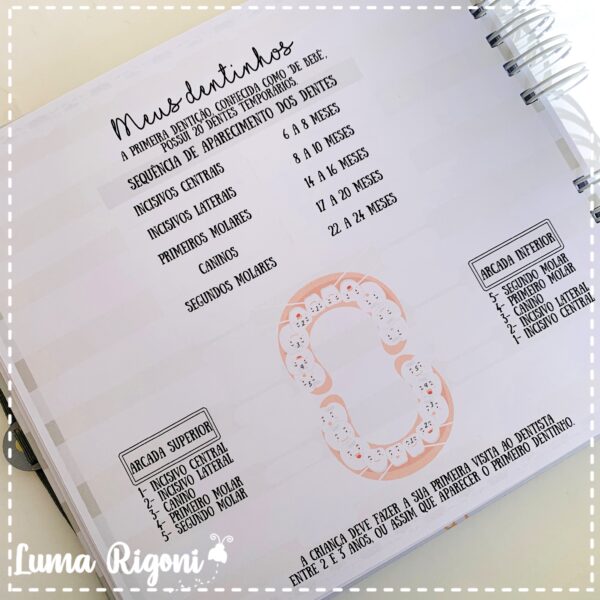 Meus dentinhos
A PRIMEIRA DENTIÇÃO, CONHECIDA COMO "DE BEBÊ",
POSSUI 20 DENTES TEMPORÁRIOS.
SEQUÊNCIA DE APARECIMENTO DOS DENTES
INCISIVOS CENTRAIS 6 A 8 MESES
INCISIVOS LATERAIS 8 A 10 MESES
PRIMEIROS MOLARES 14 A 16 MESES
CANINOS 17 A 20 MESES
SEGUNDOS MOLARES 22 A 24 MESES
ARCADA INFERIOR
5- SEGUNDO MOLAR
4- PRIMEIRO MOLAR
3- CANINO
2- INCISIVO LATERAL
1- INCISIVO CENTRAL
ARCADA SUPERIOR
1- INCISIVO CENTRAL
2- INCISIVO LATERAL
3- CANINO
4- PRIMEIRO MOLAR
5- SEGUNDO MOLAR
A CRIANÇA DEVE FAZER A SUA PRIMEIRA VISITA AO DENTISTA
ENTRE 2 E 3 ANOS, OU ASSIM QUE APARECER O PRIMEIRO DENTINHO.
Luma Rigoni